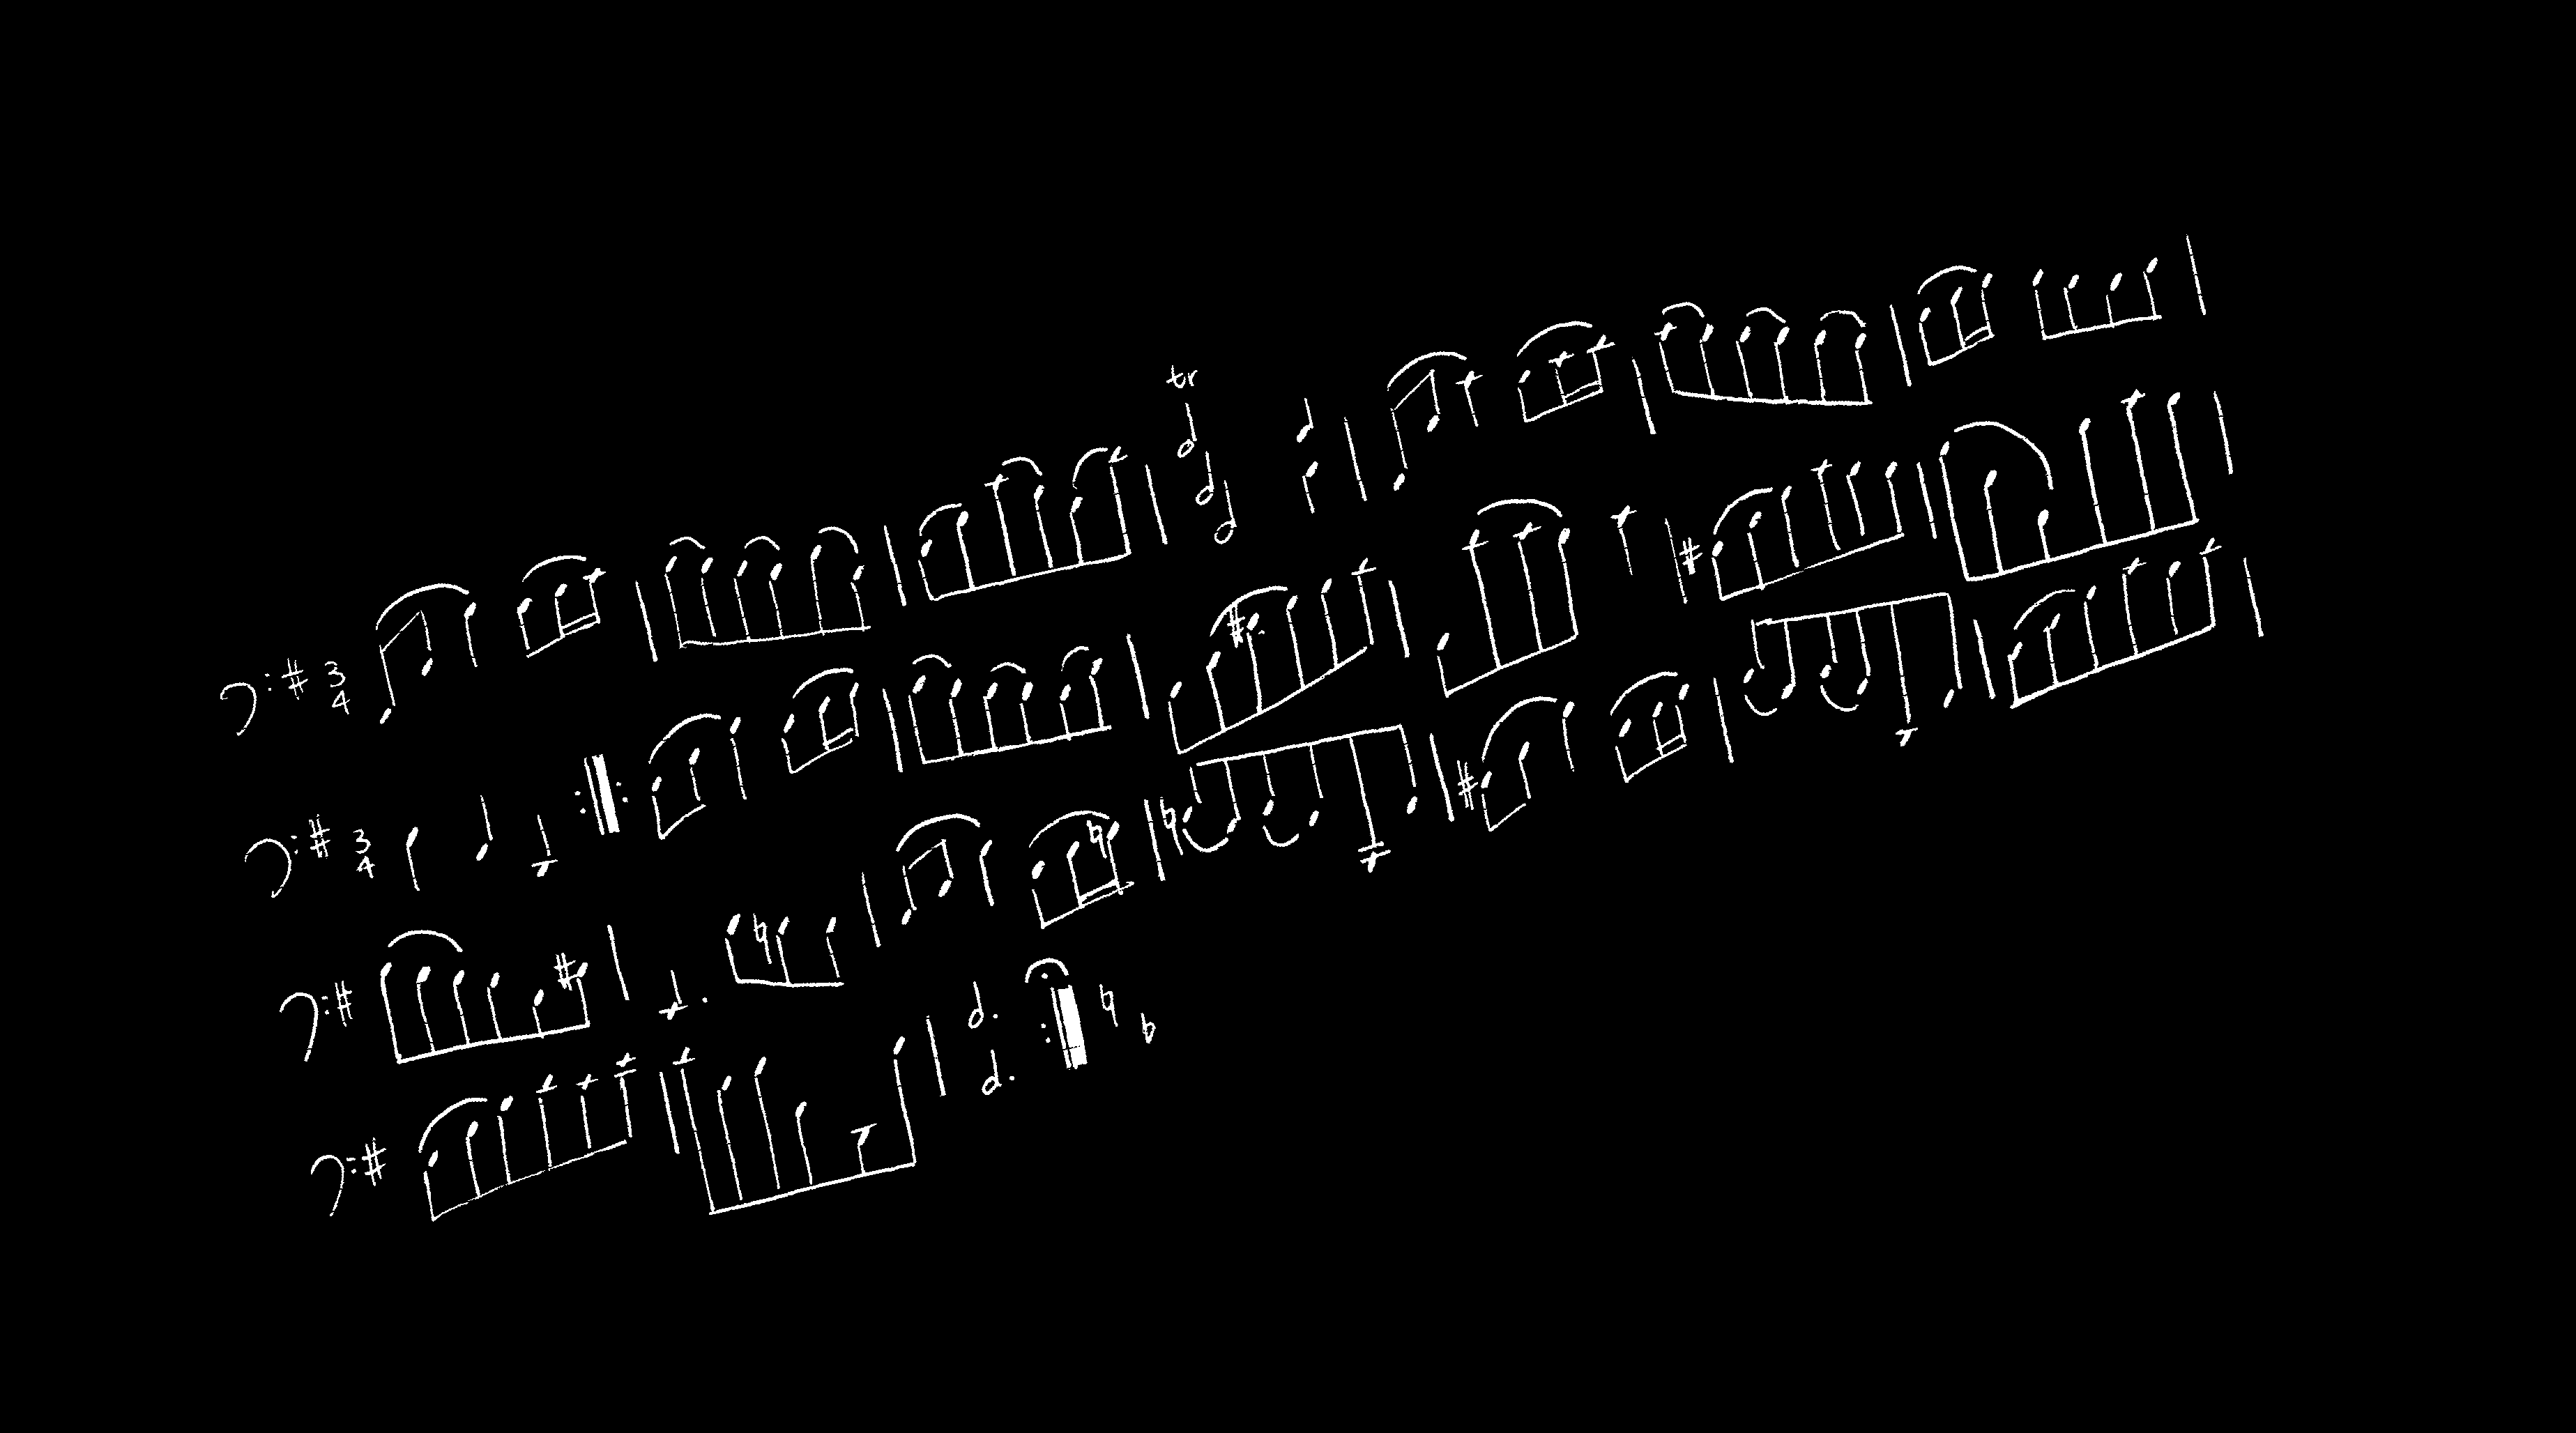 3
4
tr
3
4